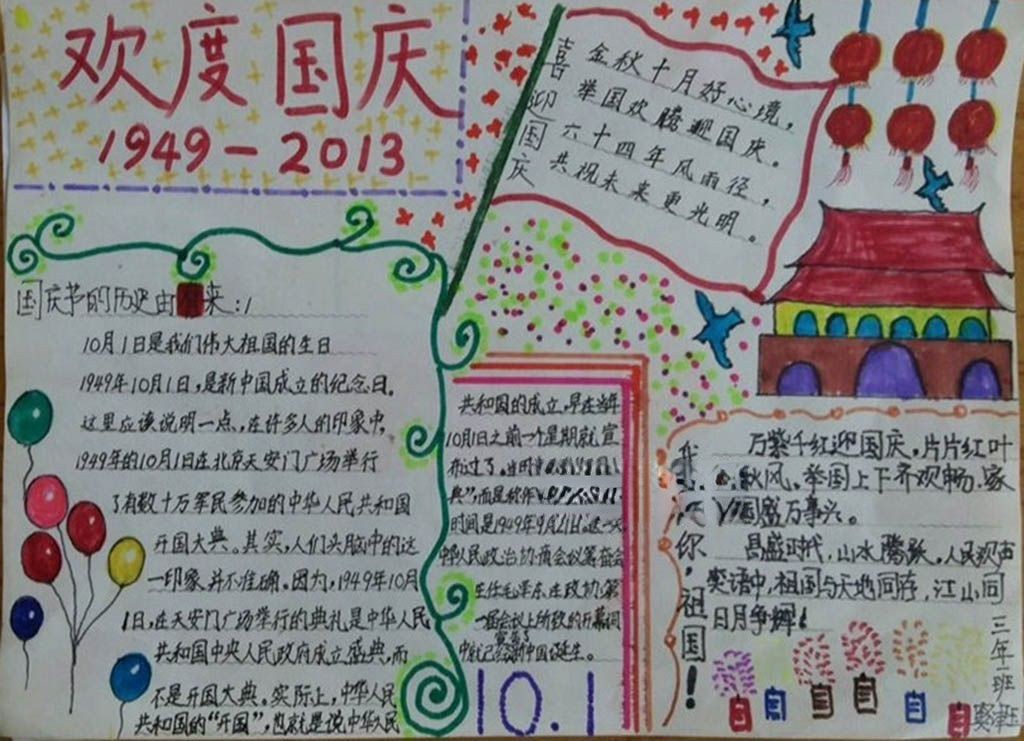 欢度国庆
1949-2013
喜迎国庆
金秋十月好心境，
举国欢腾迎国庆。
六十四年风雨径，
共祝未来更光明。
国庆节的历史由来：
10月1日是我们伟大祖国的生日
1949年10月1日，是新中国成立的纪念日。
这里应该说明一点，在许多人的印象中，
1949年的10月1日在北京天安门广场举行
了有数十万军民参加的中华人民共和国
开国大典。其实，人们头脑中的这
一印象并不准确。因为，1949年10月
1日，在天安门广场举行的典礼是中华人民
共和国中央人民政府成立盛典，而
不是开国大典。实际上，中华人民
共和国的“开国”，也就是说中华人民
共和国的成立，早在当年
10月1日之前一个星期就宣
布过了。当时
典”，而是
时间是1949年9月21日。这一天
中华人民政治协商会议筹备会
主任毛泽东在政协第
一届会议上所致的开幕词
中就已宣告了新中国诞生。
10.1
我 你，祖国！
万紫千红迎国庆，片片红叶
秋风。举国上下齐欢畅，家
国盛万事兴。
昌盛时代，山水腾跃，人民欢声
笑语中，祖国与天地同存，江山同
日月争辉！
三年一班